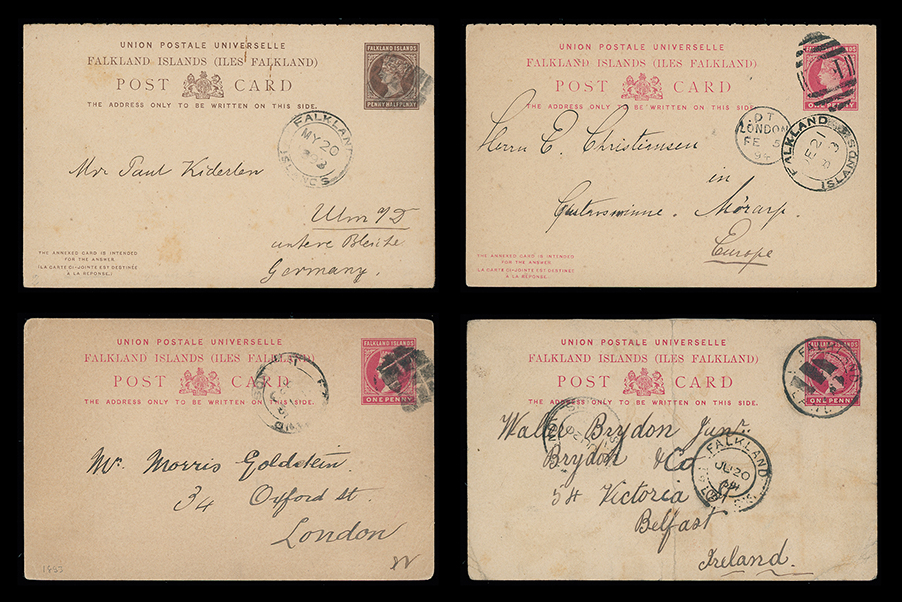 UNION POSTALE UNIVERSELLE
FALKLAND ISLANDS (ILES FALKLAND)
POST CARD
THE ADDRESS ONLY TO BE WRITTEN ON THIS SIDE.
FALKLAND ISLANDS
PENNY HALFPENNY
FALKLAND
MY 20
ISLANDS
Mr Paul Kiderlen
Ulm
untere Bleiche
Germany.
THE ANNEXED CARD IS INTENDED
FOR THE ANSWER.
(LA CARTE CI-JOINTE EST DESTINÉE
À LA RÉPONSE.)
UNION POSTALE UNIVERSELLE
FALKLAND ISLANDS (ILES FALKLAND)
POST CARD
THE ADDRESS ONLY TO BE WRITTEN ON THIS SIDE.
FALKLAND ISLANDS
ONE PENNY
LONDON
FE 5
94
FALKLAND
21
ISLANDS
Herrn E. Christiansen
in
Mörarp.
Europe
THE ANNEXED CARD IS INTENDED
FOR THE ANSWER.
(LA CARTE CI-JOINTE EST DESTINÉE
À LA RÉPONSE.)
UNION POSTALE UNIVERSELLE
FALKLAND ISLANDS (ILES FALKLAND)
POST CARD
THE ADDRESS ONLY TO BE WRITTEN ON THIS SIDE.
ONE PENNY
Mr. Morris Goldstein.
34 Oxford st.
London
UNION POSTALE UNIVERSELLE
FALKLAND ISLANDS (ILES FALKLAND)
POST CARD
THE ADDRESS ONLY TO BE WRITTEN ON THIS SIDE.
ONE PENNY
Walter Brydon Junr.
Brydon & Co
54 Victoria St
Belfast
Ireland.
FALKLAND
JU 20